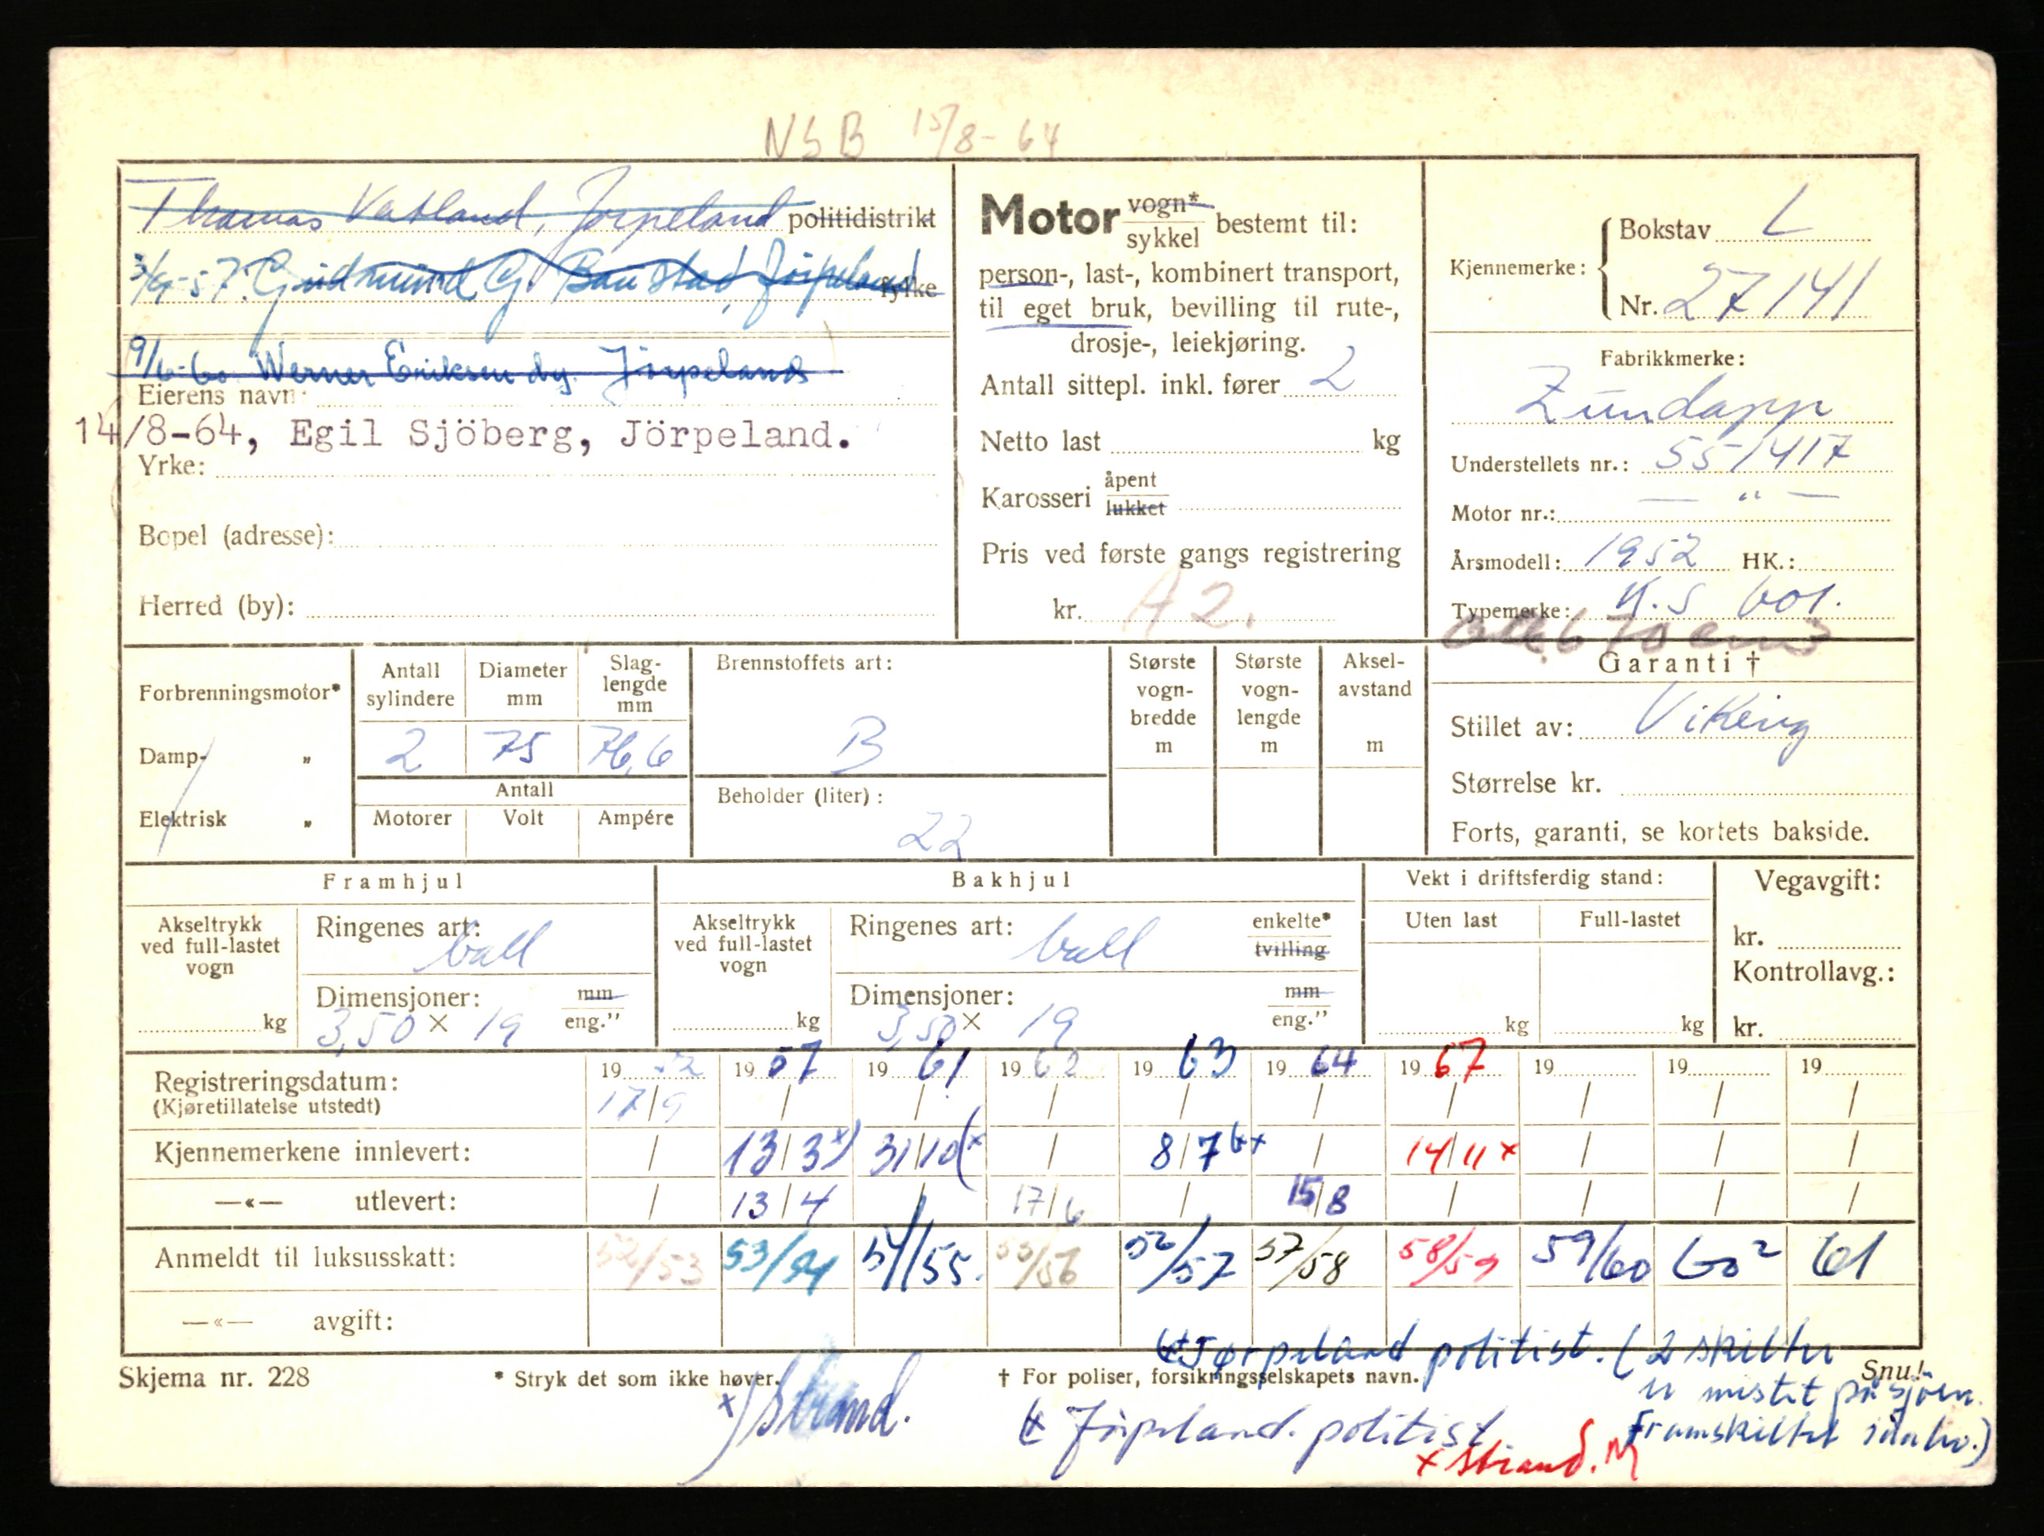 NSB 15/8-64
Thomas Vatland, Jørpeland politidistrikt
3/9-57. Gudmund G. Baustad, Jörpeland fylke
9/6-60 Werner Eriksen dy. Jörpeland
Eierens navn:
14/8-64, Egil Sjöberg, Jörpeland.
Yrke:
Bopel (adresse):
Herred (by):
Motor vogn* sykkel bestemt til:
person-, last-, kombinert transport,
til eget bruk, bevilling til rute-,
drosje-, leiekjøring.
Antall sittepl. inkl. fører 2
Netto last kg
Karosseri åpent lukket
Pris ved første gangs registrering
kr. A2.
Kjennemerke: Bokstav L
Nr. 27141
Fabrikkmerke:
Zundapp
Understellets nr.: 551417
Motor nr.: — " —
Årsmodell: 1952 HK.:
Typemerke: K.S 601.
670 cm3
Forbrenningsmotor*
Damp- "
Elektrisk "
Antall sylindere 2
Diameter mm 75
Slag-lengde mm 76,6
Antall
Motorer Volt Ampére
Brennstoffets art:
B
Beholder (liter):
22
Største vogn-bredde m
Største vogn-lengde m
Aksel-avstand m
Garanti †
Stillet av: Viking
Størrelse kr.
Forts, garanti, se kortets bakside.
Framhjul
Akseltrykk ved full-lastet vogn kg
Ringenes art: ball
Dimensjoner: mm eng."
3,50 × 19
Bakhjul
Akseltrykk ved full-lastet vogn kg
Ringenes art: ball enkelte* tvilling
Dimensjoner: mm eng."
3,50 × 19
Vekt i driftsferdig stand:
Uten last Full-lastet
kg kg
Vegavgift:
kr.
Kontrollavg.:
kr.
Registreringsdatum: 19 52 19 57 19 61 19 62 19 63 19 64 19 67 19 19 19
(Kjøretillatelse utstedt) 17/9 / / / / / / / / /
Kjennemerkene innlevert: / 13/3 x) 31/10 (x / 8/7 x / 14/11 x / / /
—«— utlevert: / 13/4 / 17/6 / 15/8 / / / /
Anmeldt til luksusskatt: 52/53 53/54 54/55. 55/56 56/57 57/58 58/59 59/60 60² 61
—«— avgift:
Skjema nr. 228
* Stryk det som ikke høver.
† For poliser, forsikringsselskapets navn.
Snu!
x) Strand.
Jørpeland politist. (2 skilter
er mistet på sjöen.
Framskiltet innlev.)
Jörpeland. politist
x Strand. M